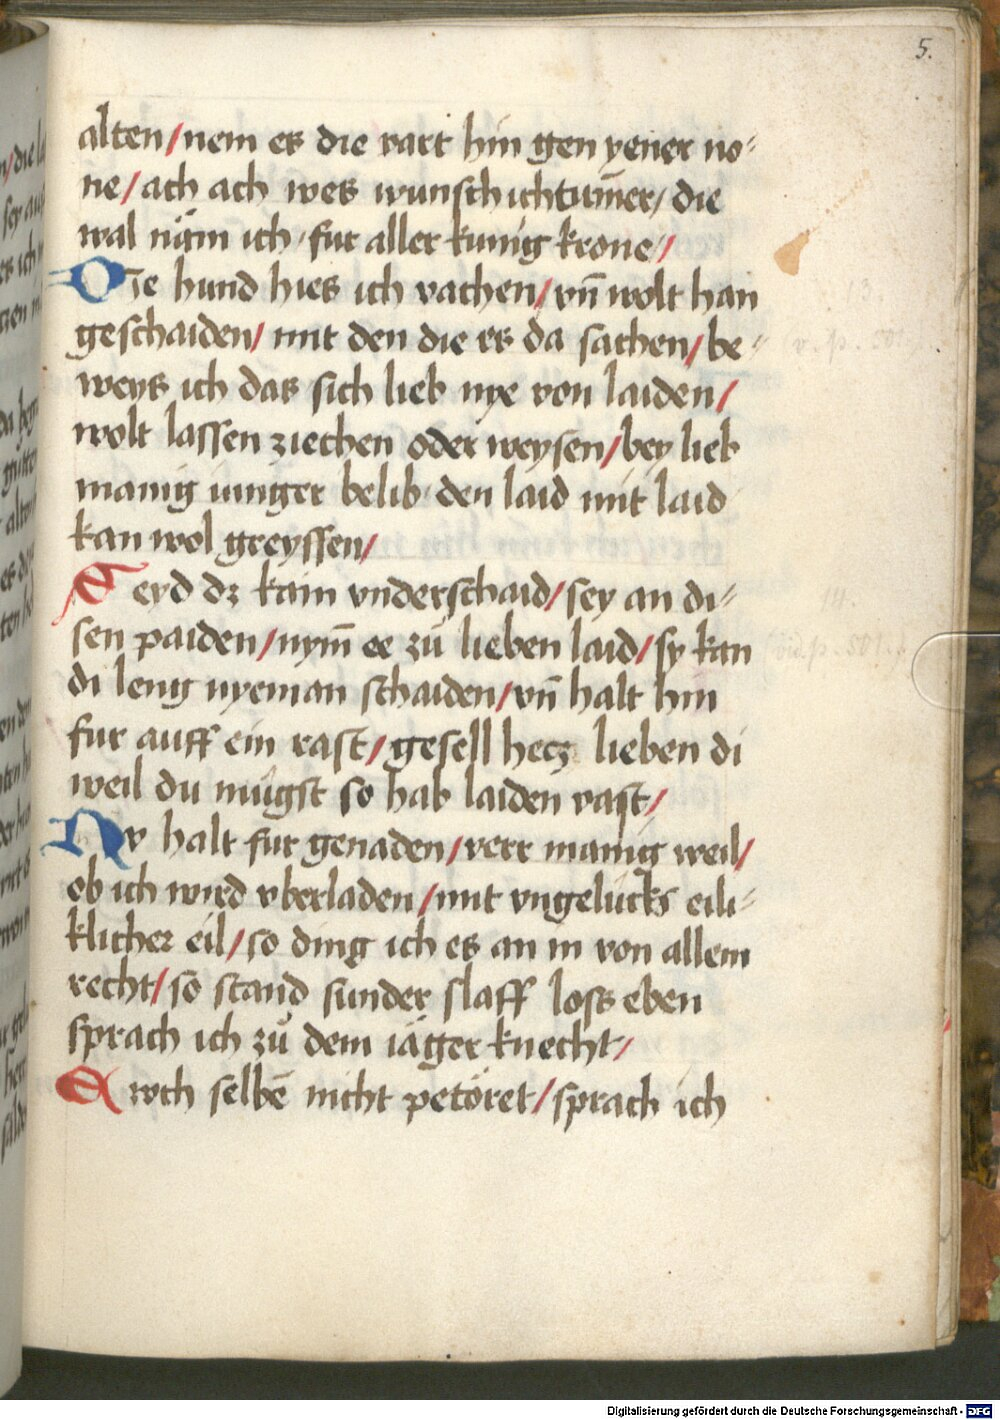 5.
alten/nem er die vart hin gen yener no-
ne/ach ach wes wunsch ich tum̄er/die
wal näm ich fur aller kunig krone/
Die hund hies ich vachen/vn̄ wolt han
geschaiden/mit den die er da sachen/be-
weys ich das sich lieb nye von laiden/
wolt lassen ziechen oder weysen/bey lieb
manig iuniger belib den laid mit laid
kan wol greyssen/
Seyd dz kain vnderschaid/sey an di-
sen paiden/nym̄ ee zů lieben laid/sy kan
di leng nyeman schaiden/vn̄ halt hin
fur auff ein rast/gesell hecz lieben di
weil du mügst so hab laiden vast/
Nv halt fur genaden/verr manig weil/
ob ich wird vberladen/mit vngelücks eili-
klicher eil/so ding ich es an in von allem
recht/so stand sunder slaff loss eben
sprach ich zů dem iäger knecht/
Awch selbē nicht petöret/sprach ich
Digitalisierung gefördert durch die Deutsche Forschungsgemeinschaft - DFG